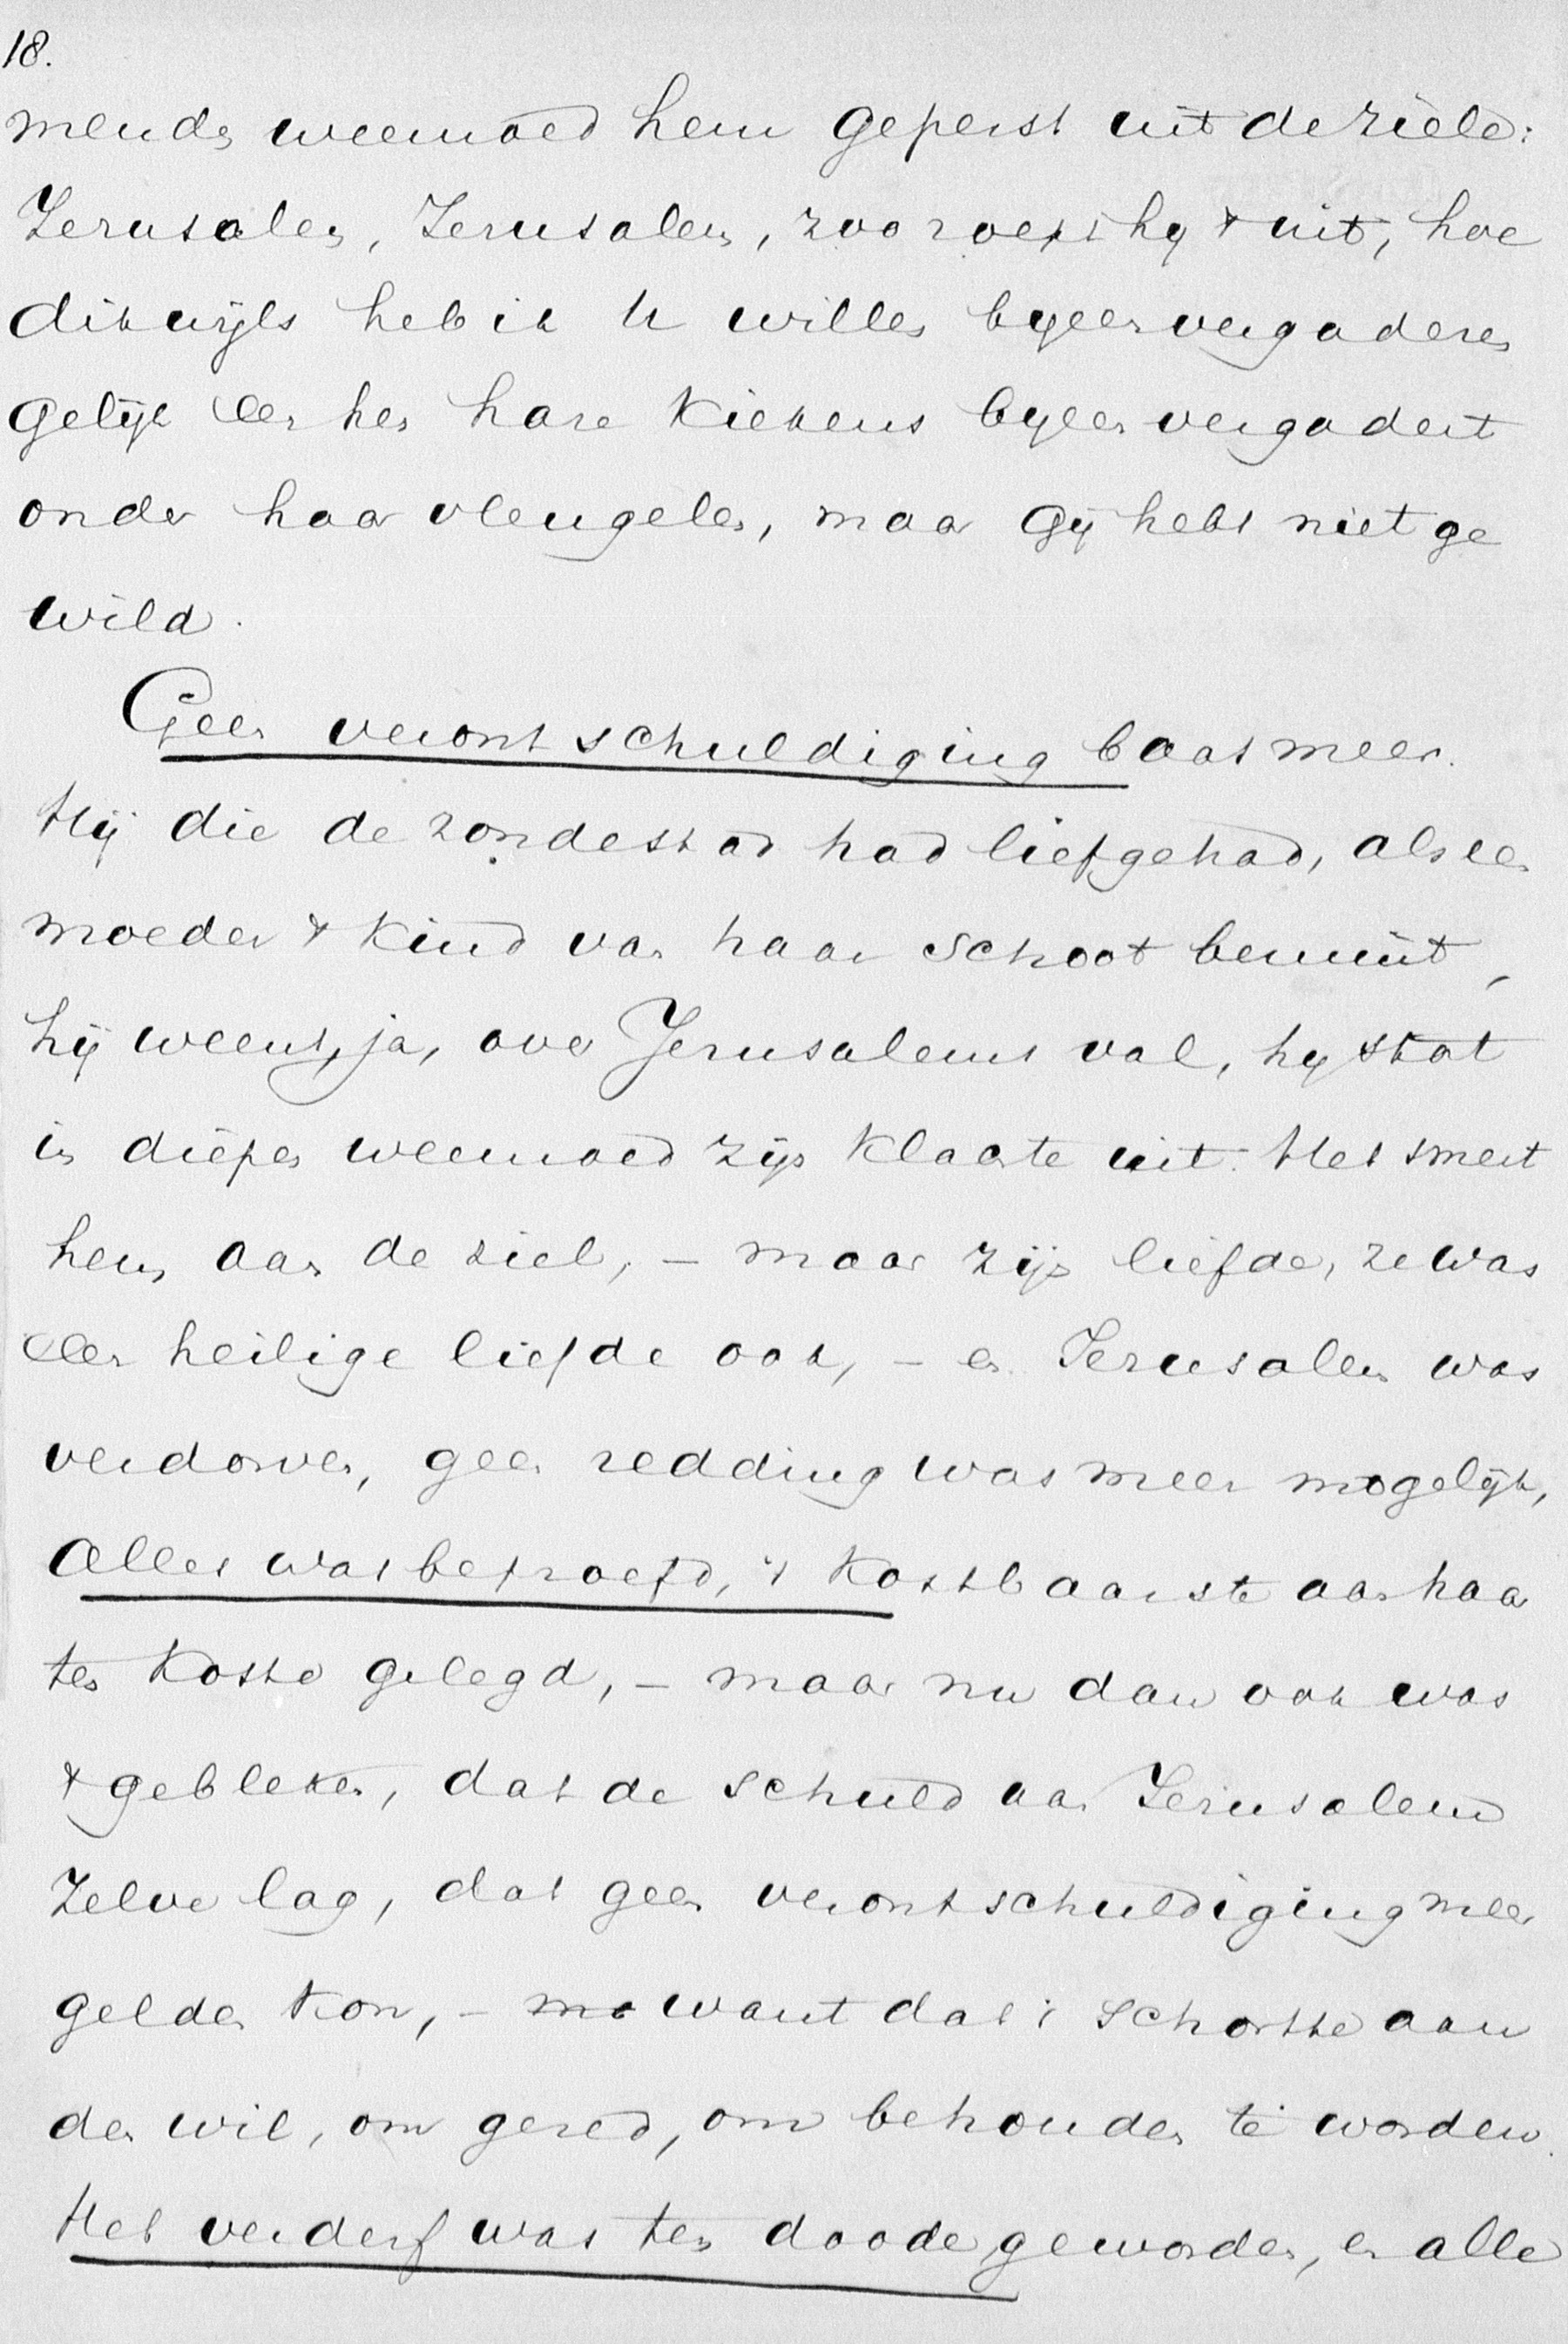 18.
mende weemoed hem geperst uit de ziele:
Jerusalem, Jerusalem, zoo roept hy 't uit, hoe
dikwijls heb ik U willen byeenvergaderen
gelijk een hen hare kiekens byeen vergadert
onder haar vleugelen, maar gij hebt niet ge
wild.
Geen verontschuldiging baat meer.
Hij die de zondestad had liefgehad, als een
moeder 't kind van haar schoot bemint,
hij weent, ja, over Jerusalems val, hy stort
in diepen weemoed zijn klachte uit. Het smert
hem aan de ziel, – maar zijn liefde, ze was
een heilige liefde ook, – en Jerusalem was
verdorven, geen redding was meer mogelijk,
Alles was beproefd, 't kostbaarste aan haar
ten koste gelegd, – maar nu dan ook was
't gebleken, dat de schuld aan Jerusalem
zelve lag, dat geen verontschuldiging meer
gelden kon, – ma want dat 't schortte aan
den wil, om gered, om behouden te worden.
Het verderf was ten doode geworden, en alle